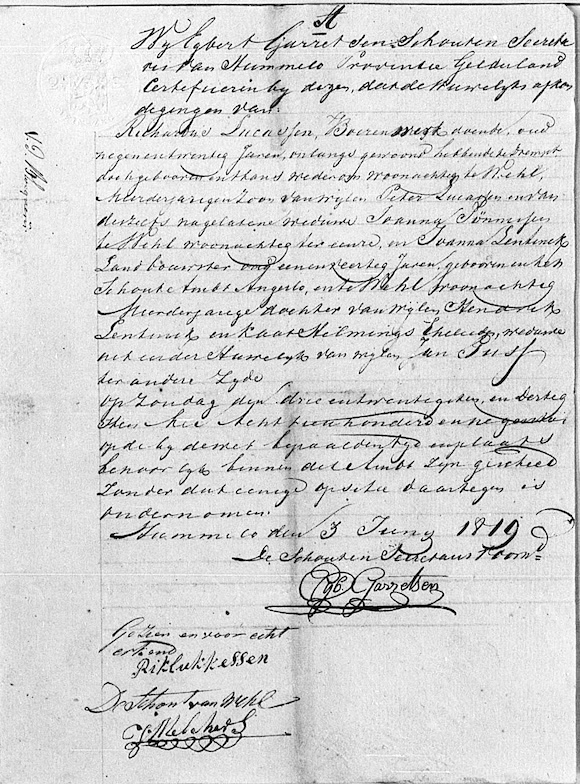 A
Wy Egbert Garretsen Schout en Secreta
ris van Hummelo Provintie Gelderland
Certifieeren by dezen, dat de Huwelyks afkon
degingen van
Richardus Lucassen, Boerenwerk doende, oud
negen en twentig Jaren, onlangs gewoond hebbende te Drempt
doch gebooren en thans wederom woonachtig te Wehl,
Meerderjarigen Zoon van wylen Peter Lucassen en van
deszelfs nagelatene weduwe Joanna Tönnissen
te Wehl woonachtig ter eenre, en Joanna Lentinck
Landbouwster oud een en veertig Jaren, gebooren in het
Schoutambt Angerlo, en te Wehl woonachtig
Meerderjarige dochter van wylen Hendrik
Lentinck en Kaat Helmings Eheleeden, weduwe
uit eerder Huwelyk van wylen Jan
ter andere Zyde
op Zondag den drie en twentigsten, en Dertig
sten Mei Achttienhonderd en negentien
op de by de wet bepaalden tyd en plaats
behoorlyk binnen dit Ambt zyn geschied
Zonder dat eenige opsitie daartegen is
ondernomen.
Hummelo den 3 Juny 1819
De Schout en Secretaris voornd
Egb. Garretsen
Gezien en voor echt
erkend
Rik lukkessen
De Schout van Wehl
Melchers